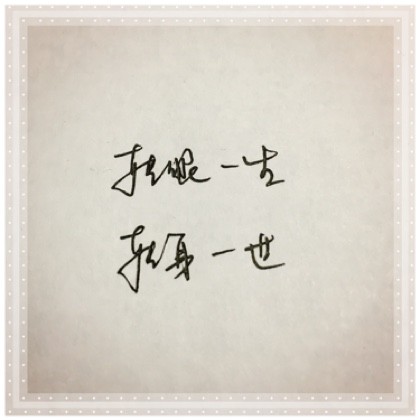 转眼一生
转身一世